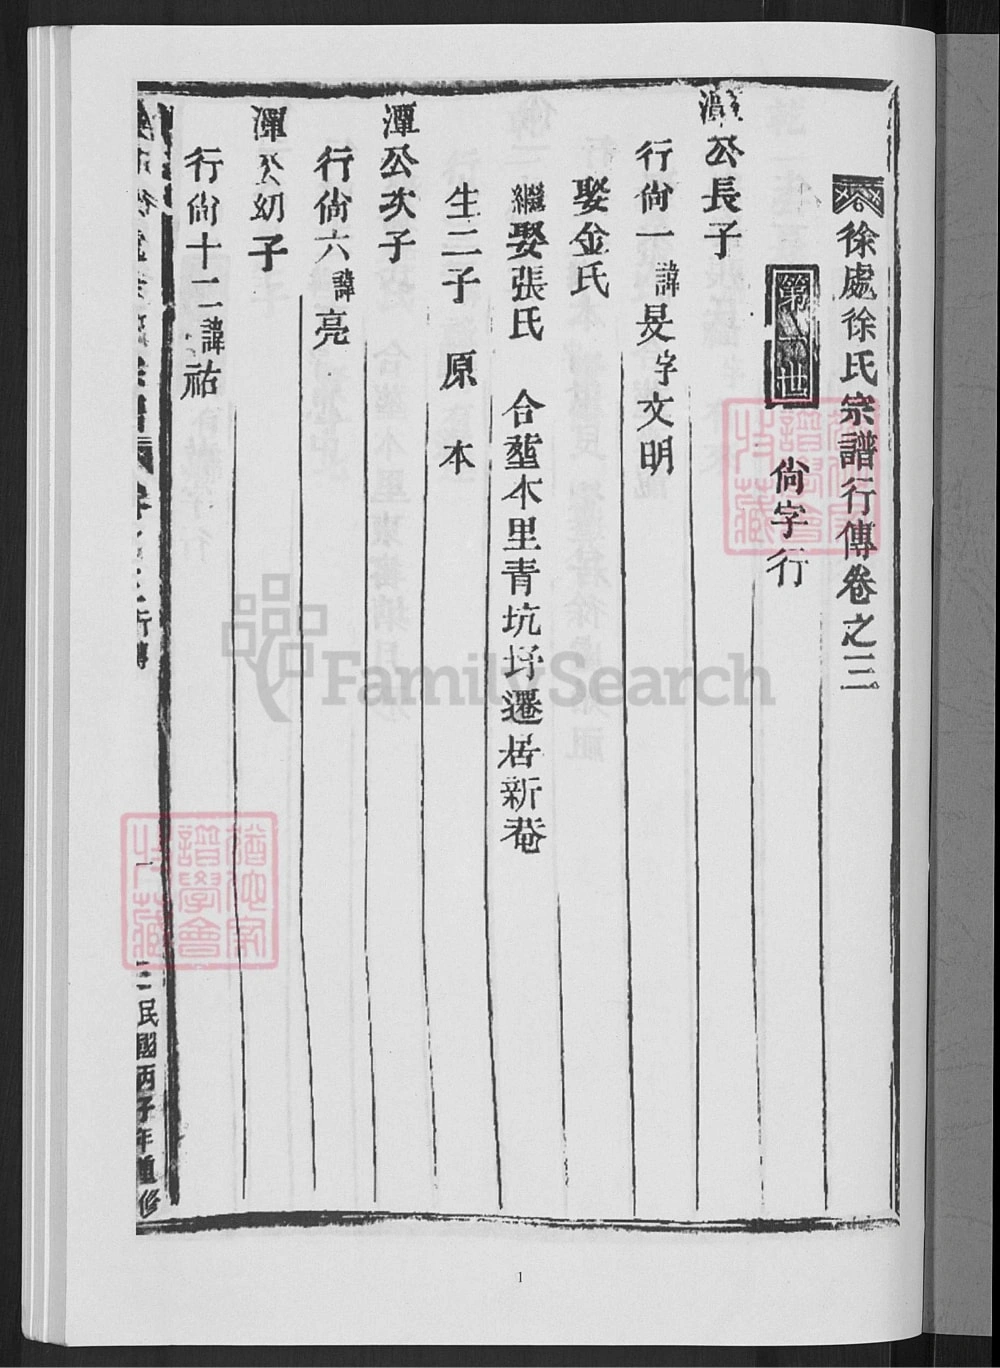 徐處徐氏宗譜行傳卷之三
第一世
尙字行
潭公長子
行尙一諱旻字文明
娶金氏
繼娶張氏　合塟本里青坑圩遷居新菴
生二子　原　本
潭公次子
行尙六諱亮
潭公幼子
行尙十二諱祐
行傳
一
民國丙子年重修
FamilySearch
譜學會
收藏
譜學會
收藏
1